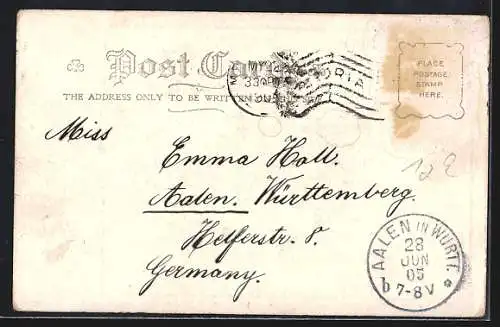 Post Card
THE ADDRESS ONLY TO BE WRITTEN
PLACE
POSTAGE
STAMP
HERE.
Miss
Emma Holl.
Aalen. Württemberg.
Helferstr. 8.
Germany.
AALEN IN WÜRTT.
28
JUN
05
b 7-8 V